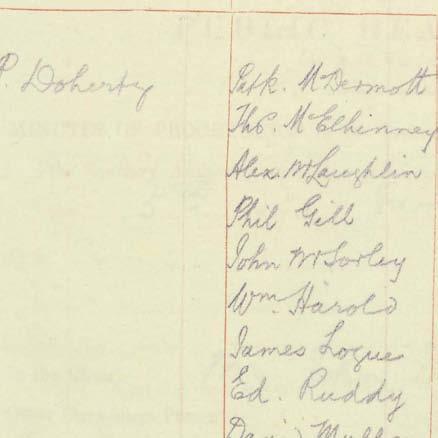 P. Doherty
Patk. McDermott
Thos. McElhinney
Alex. McLaughlin
Phil Gill
John McSorley
Wm. Harold
James Logue
Ed. Ruddy
David